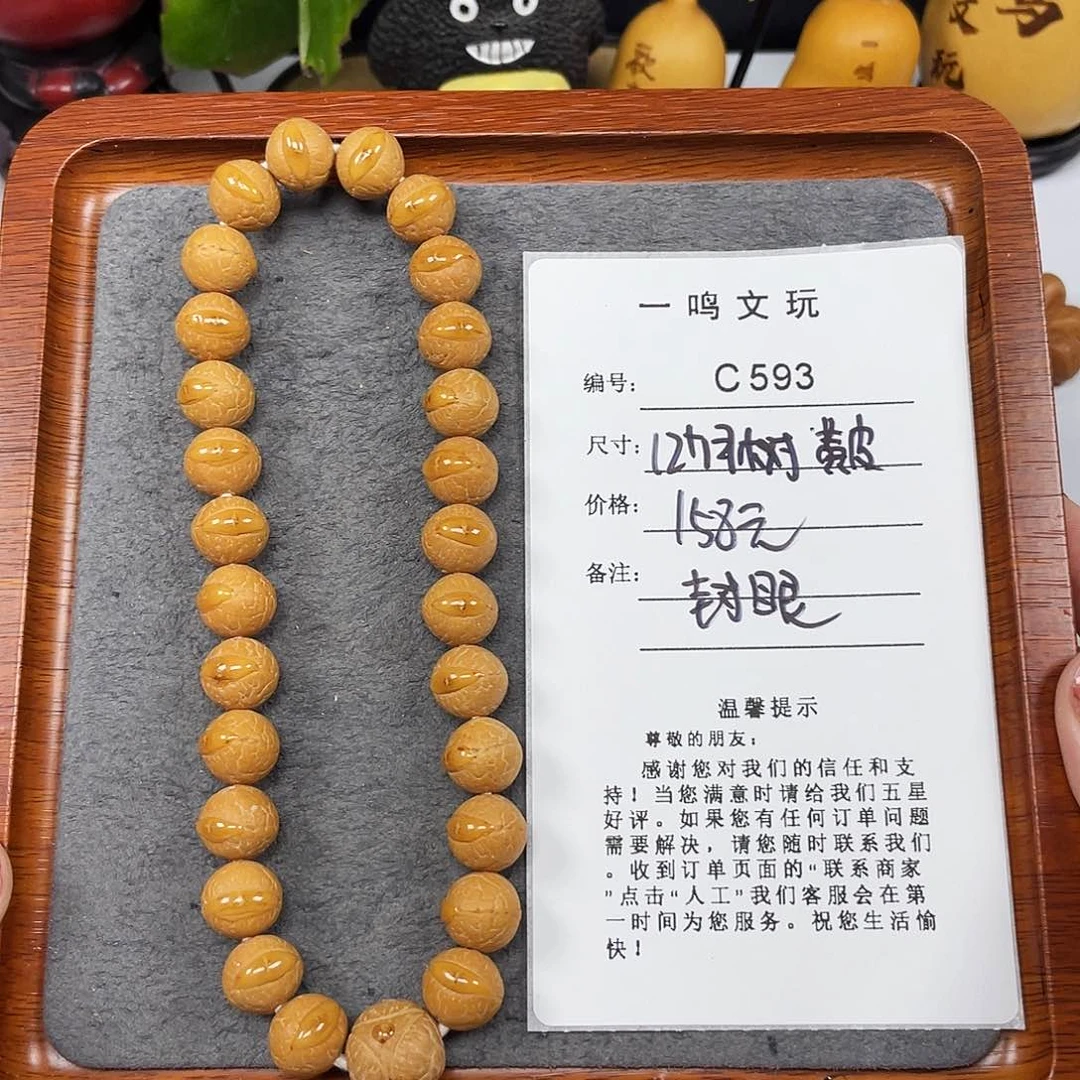 一鸣文玩
编号: C593
尺寸: 黄皮
价格: 158元
备注: 封眼
温馨提示
尊敬的朋友:
感谢您对我们的信任和支
持!当您满意时请给我们五星
好评。如果您有任何订单问题
需要解决,请您随时联系我们
。收到订单页面的“联系商家
”点击“人工”我们客服会在第
一时间为您服务。祝您生活愉
快!